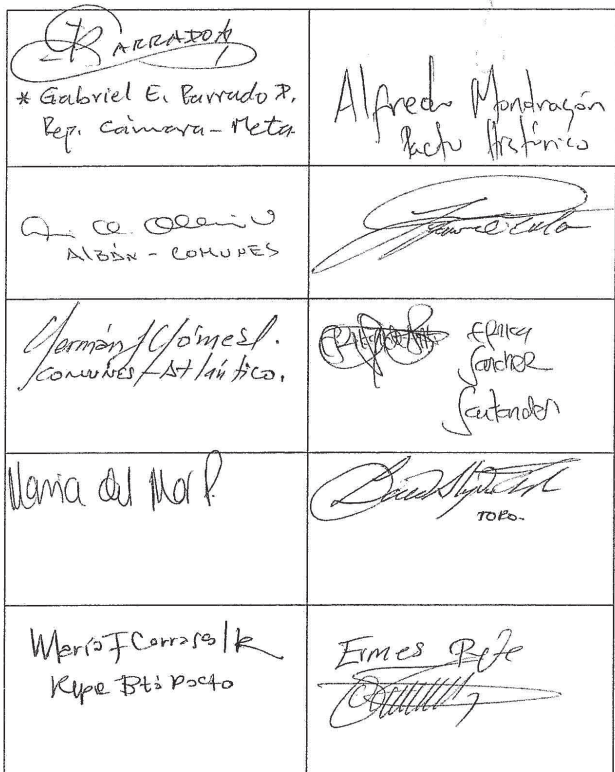 PARRADO
* Gabriel E. Parrado D.
Rep. Cámara - Meta
Alfredo Mondragón
Pacto Histórico
Albán - COMUNES
Germán J Gómez l.
COMUNES - Atlántico.
ERika
Sanchez
Santander
Maria del Mar P.
TORO.
María F Carrascal R
Rep Btá Pacto
Ermes Pete